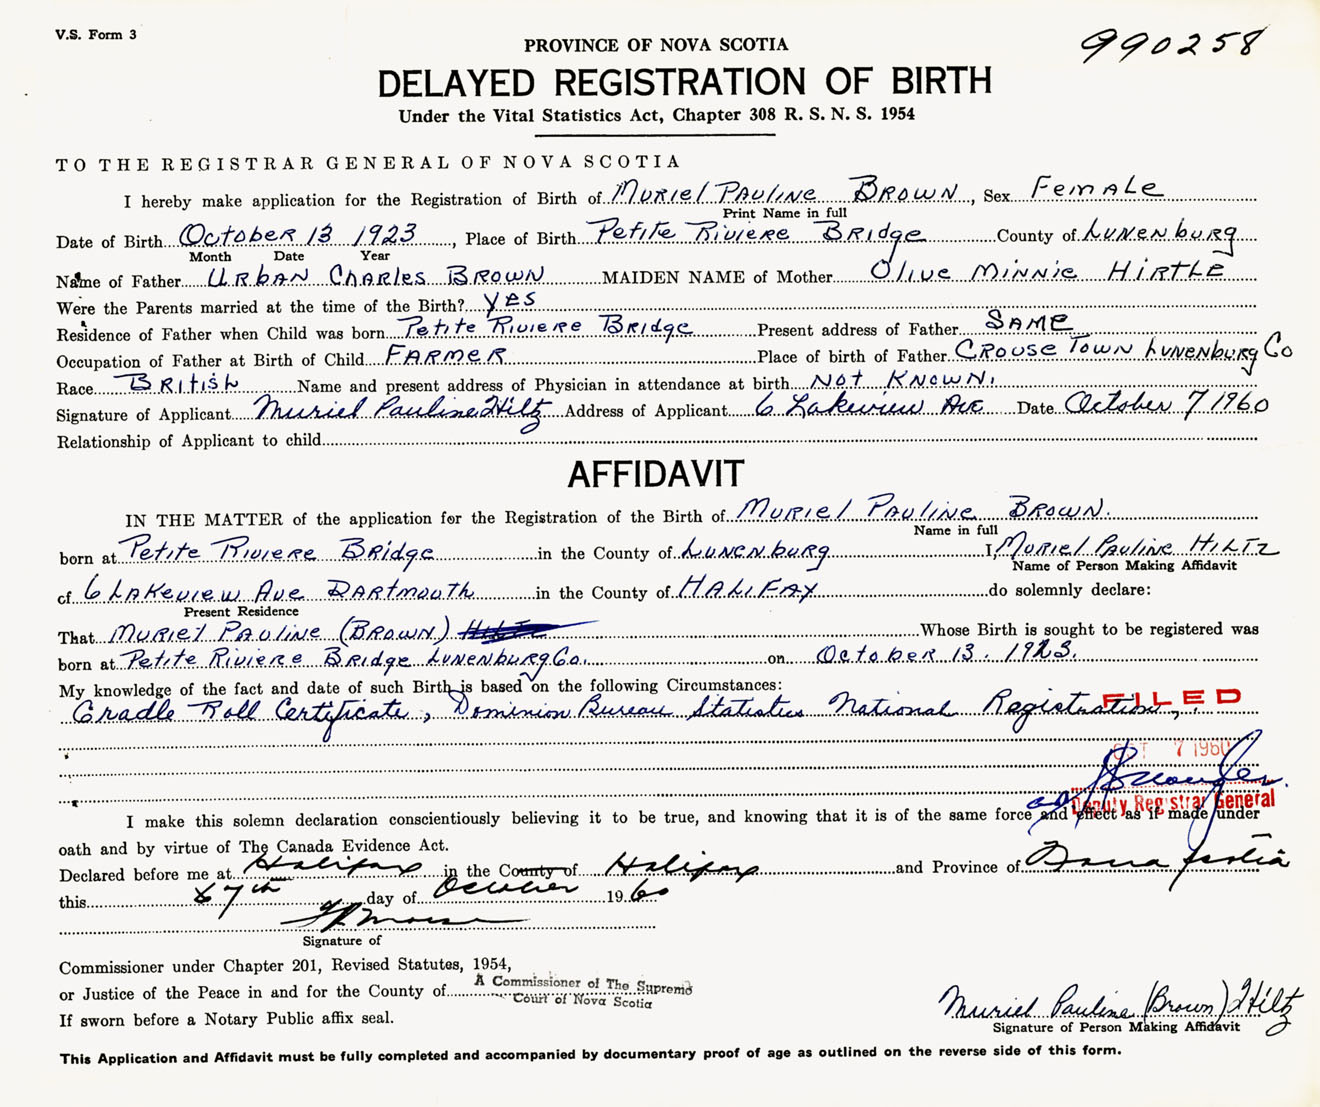 V.S. Form 3
990258
PROVINCE OF NOVA SCOTIA
DELAYED REGISTRATION OF BIRTH
Under the Vital Statistics Act, Chapter 308 R. S. N. S. 1954
TO THE REGISTRAR GENERAL OF NOVA SCOTIA
I hereby make application for the Registration of Birth of Muriel Pauline Brown, Sex Female
Print Name in full
Date of Birth October 13 1923, Place of Birth Petite Riviere Bridge County of Lunenburg
Month Date Year
Name of Father Urban Charles Brown MAIDEN NAME of Mother Olive Minnie Hirtle
Were the Parents married at the time of the Birth? Yes
Residence of Father when Child was born Petite Riviere Bridge Present address of Father Same
Occupation of Father at Birth of Child Farmer Place of birth of Father Crouse Town Lunenburg Co
Race British Name and present address of Physician in attendance at birth Not Known.
Signature of Applicant Muriel Pauline Hiltz Address of Applicant 6 Lakeview Ave Date October 7 1960
Relationship of Applicant to child
AFFIDAVIT
IN THE MATTER of the application for the Registration of the Birth of Muriel Pauline Brown.
Name in full
born at Petite Riviere Bridge in the County of Lunenburg I, Muriel Pauline Hiltz
Name of Person Making Affidavit
of 6 Lakeview Ave Dartmouth in the County of Halifax do solemnly declare:
Present Residence
That Muriel Pauline (Brown) Whose Birth is sought to be registered was
born at Petite Riviere Bridge Lunenburg Co. on October 13. 1923.
My knowledge of the fact and date of such Birth is based on the following Circumstances:
Cradle Roll Certificate, Dominion Bureau Statistics National Registration,
FILED
OCT 7 1960
Deputy Registrar General
I make this solemn declaration conscientiously believing it to be true, and knowing that it is of the same force and effect as if made under
oath and by virtue of The Canada Evidence Act.
Declared before me at Halifax in the County of Halifax and Province of Nova Scotia
this 7th day of October 1960
Signature of
Commissioner under Chapter 201, Revised Statutes, 1954,
or Justice of the Peace in and for the County of A Commissioner of The Supreme
Court of Nova Scotia
If sworn before a Notary Public affix seal.
Muriel Pauline (Brown) Hiltz
Signature of Person Making Affidavit
This Application and Affidavit must be fully completed and accompanied by documentary proof of age as outlined on the reverse side of this form.